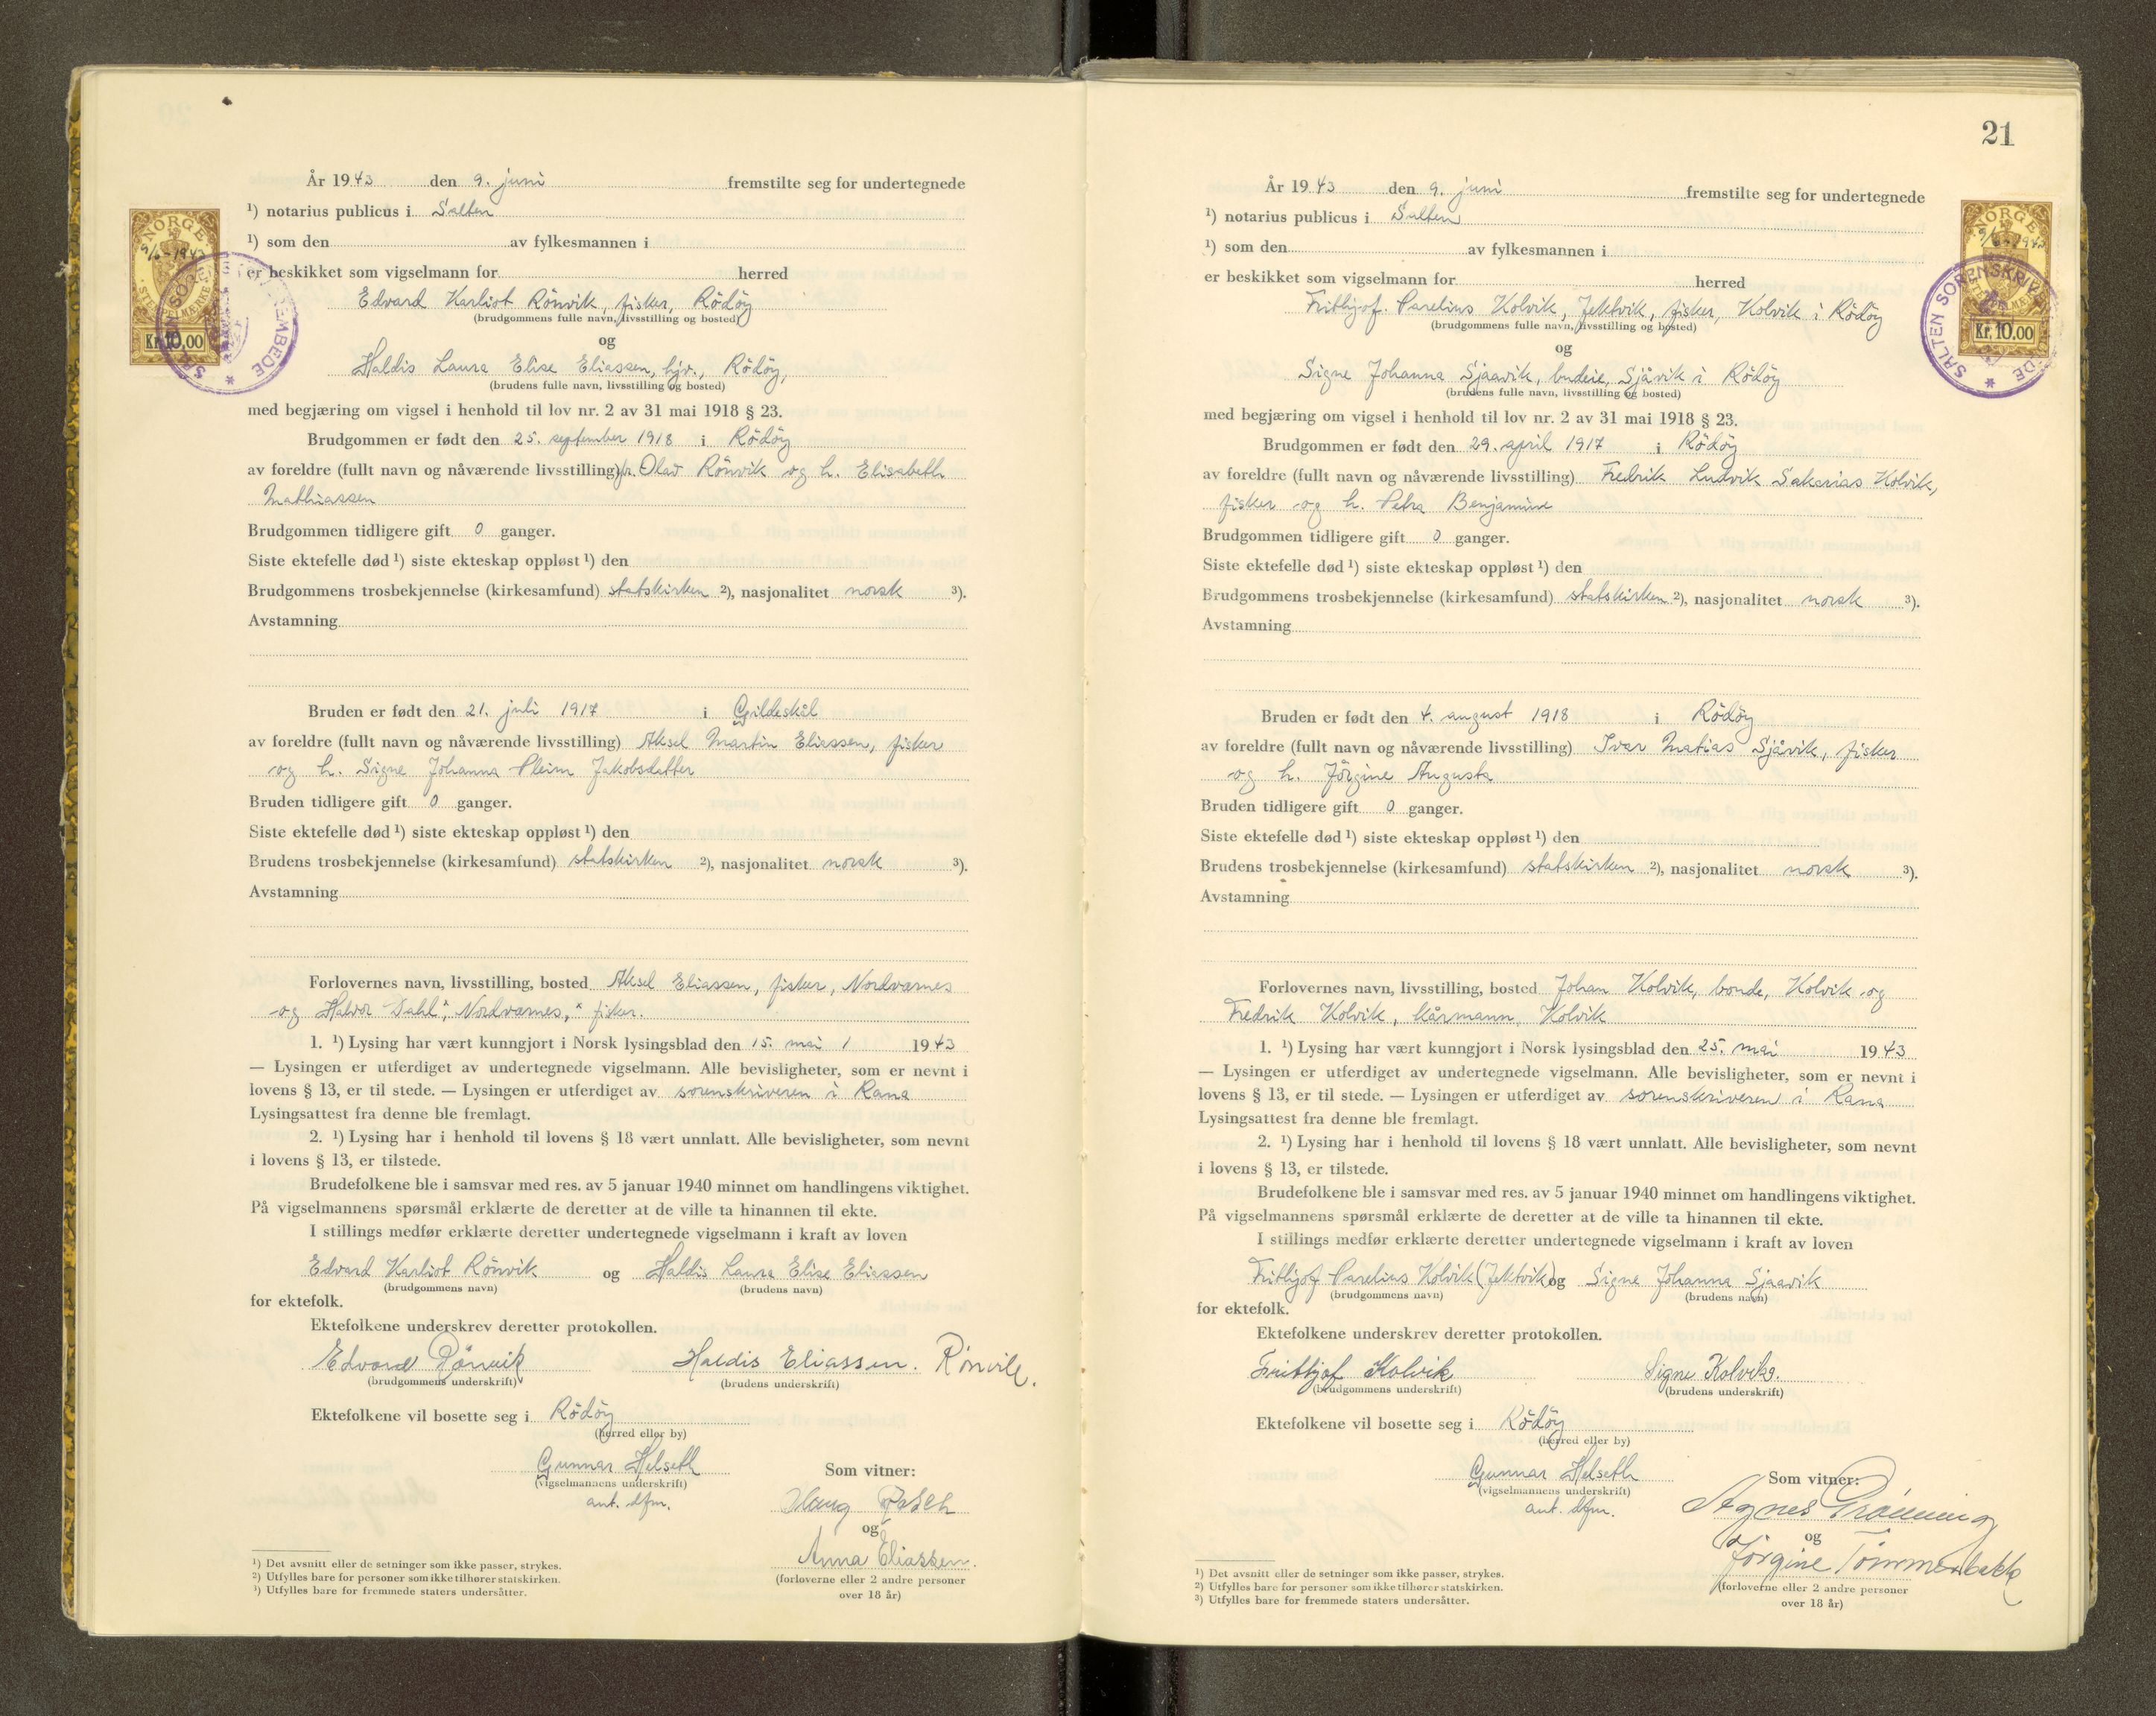 År 1943 den 9. juni fremstilte seg for undertegnede
¹) notarius publicus i Salten
¹) som den av fylkesmannen i
er beskikket som vigselmann for herred
Edvard Karliot Rönvik, fisker, Rödöy
(brudgommens fulle navn, livsstilling og bosted)
og
Haldis Laura Elise Eliassen, hjv., Rödöy,
(brudens fulle navn, livsstilling og bosted)
med begjæring om vigsel i henhold til lov nr. 2 av 31 mai 1918 § 23.
Brudgommen er født den 25. september 1918 i Rödöy
av foreldre (fullt navn og nåværende livsstilling) Olav Rönvik og h. Elisabeth
Mathiassen
Brudgommen tidligere gift 0 ganger.
Siste ektefelle død ¹) siste ekteskap oppløst ¹) den
Brudgommens trosbekjennelse (kirkesamfund) statskirken ²), nasjonalitet norsk ³).
Avstamning
Bruden er født den 21. juli 1917 i Gildeskål
av foreldre (fullt navn og nåværende livsstilling) Aksel Martin Eliassen, fisker
og h. Signe Johanna Pleim Jakobsdatter
Bruden tidligere gift 0 ganger.
Siste ektefelle død ¹) siste ekteskap oppløst ¹) den
Brudens trosbekjennelse (kirkesamfund) statskirken ²), nasjonalitet norsk ³).
Avstamning
Forlovernes navn, livsstilling, bosted Aksel Eliassen, fisker, Nordvarnes
og Halvor Dahl, Nordvarnes, fisker.
1. ¹) Lysing har vært kunngjort i Norsk lysingsblad den 15. mai 1943
— Lysingen er utferdiget av undertegnede vigselmann. Alle bevisligheter, som er nevnt i
lovens § 13, er til stede. — Lysingen er utferdiget av sorenskriveren i Rana
Lysingsattest fra denne ble fremlagt.
2. ¹) Lysing har i henhold til lovens § 18 vært unnlatt. Alle bevisligheter, som nevnt
i lovens § 13, er tilstede.
Brudefolkene ble i samsvar med res. av 5 januar 1940 minnet om handlingens viktighet.
På vigselmannens spørsmål erklærte de deretter at de ville ta hinannen til ekte.
I stillings medfør erklærte deretter undertegnede vigselmann i kraft av loven
Edvard Karliot Rönvik og Haldis Laura Elise Eliassen
(brudgommens navn) (brudens navn)
for ektefolk.
Ektefolkene underskrev deretter protokollen.
Edvard Rönvik Haldis Eliassen. Rönvik.
(brudgommens underskrift) (brudens underskrift)
Ektefolkene vil bosette seg i Rödöy
(herred eller by)
Gunnar Helseth
(vigselmannens underskrift)
aut. dfm.
Som vitner:
og
Anna Eliassen.
(forloverne eller 2 andre personer
over 18 år)
¹) Det avsnitt eller de setninger som ikke passer, strykes.
²) Utfylles bare for personer som ikke tilhører statskirken.
³) Utfylles bare for fremmede staters undersåtter.
NORGE
9/6-1943
Kr. 10,00
21
År 1943 den 9. juni fremstilte seg for undertegnede
¹) notarius publicus i Salten
¹) som den av fylkesmannen i
er beskikket som vigselmann for herred
Frithjof Parelius Kolvik, Jektvik, fisker, Kolvik i Rödöy
(brudgommens fulle navn, livsstilling og bosted)
og
Signe Johanna Sjaavik, budeie, Sjåvik i Rödöy
(brudens fulle navn, livsstilling og bosted)
med begjæring om vigsel i henhold til lov nr. 2 av 31 mai 1918 § 23.
Brudgommen er født den 29. april 1917 i Rödöy
av foreldre (fullt navn og nåværende livsstilling) Fredrik Ludvik Sakarias Kolvik,
fisker og h. Petra Benjamine
Brudgommen tidligere gift 0 ganger.
Siste ektefelle død ¹) siste ekteskap oppløst ¹) den
Brudgommens trosbekjennelse (kirkesamfund) statskirken ²), nasjonalitet norsk ³).
Avstamning
Bruden er født den 4. august 1918 i Rödöy
av foreldre (fullt navn og nåværende livsstilling) Ivar Matias Sjåvik, fisker
og h. Jörgine Augusta
Bruden tidligere gift 0 ganger.
Siste ektefelle død ¹) siste ekteskap oppløst ¹) den
Brudens trosbekjennelse (kirkesamfund) statskirken ²), nasjonalitet norsk ³).
Avstamning
Forlovernes navn, livsstilling, bosted Johan Kolvik, bonde, Kolvik og
Fredrik Kolvik, kårmann, Kolvik
1. ¹) Lysing har vært kunngjort i Norsk lysingsblad den 25. mai 1943
— Lysingen er utferdiget av undertegnede vigselmann. Alle bevisligheter, som er nevnt i
lovens § 13, er til stede. — Lysingen er utferdiget av sorenskriveren i Rana
Lysingsattest fra denne ble fremlagt.
2. ¹) Lysing har i henhold til lovens § 18 vært unnlatt. Alle bevisligheter, som nevnt
i lovens § 13, er tilstede.
Brudefolkene ble i samsvar med res. av 5 januar 1940 minnet om handlingens viktighet.
På vigselmannens spørsmål erklærte de deretter at de ville ta hinannen til ekte.
I stillings medfør erklærte deretter undertegnede vigselmann i kraft av loven
Frithjof Parelius Kolvik (Jektvik) og Signe Johanna Sjaavik
(brudgommens navn) (brudens navn)
for ektefolk.
Ektefolkene underskrev deretter protokollen.
Frithjof Kolvik Signe Kolvik.
(brudgommens underskrift) (brudens underskrift)
Ektefolkene vil bosette seg i Rödöy
(herred eller by)
Gunnar Helseth
(vigselmannens underskrift)
aut. dfm.
Som vitner:
Agnes Grönning
og
Jörgine Tömmerbakk
(forloverne eller 2 andre personer
over 18 år)
¹) Det avsnitt eller de setninger som ikke passer, strykes.
²) Utfylles bare for personer som ikke tilhører statskirken.
³) Utfylles bare for fremmede staters undersåtter.
NORGE
9/6-1943
Kr. 10,00
SALTEN SORENSKRIVER